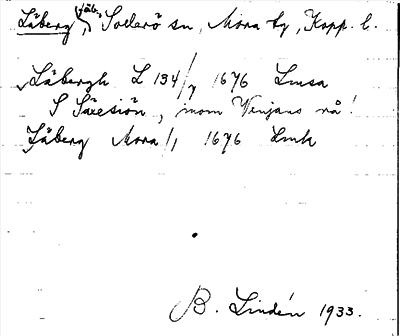 Läberg, (fäb.) Sollerö sn, Mora tg, Kopp. l.
Läbergh L 134/7 1676 Lmsa
S Säxesiön, inom Venjans rå!
Läberg Mora 1/1 1676 Lmk
B. Lindén 1933.